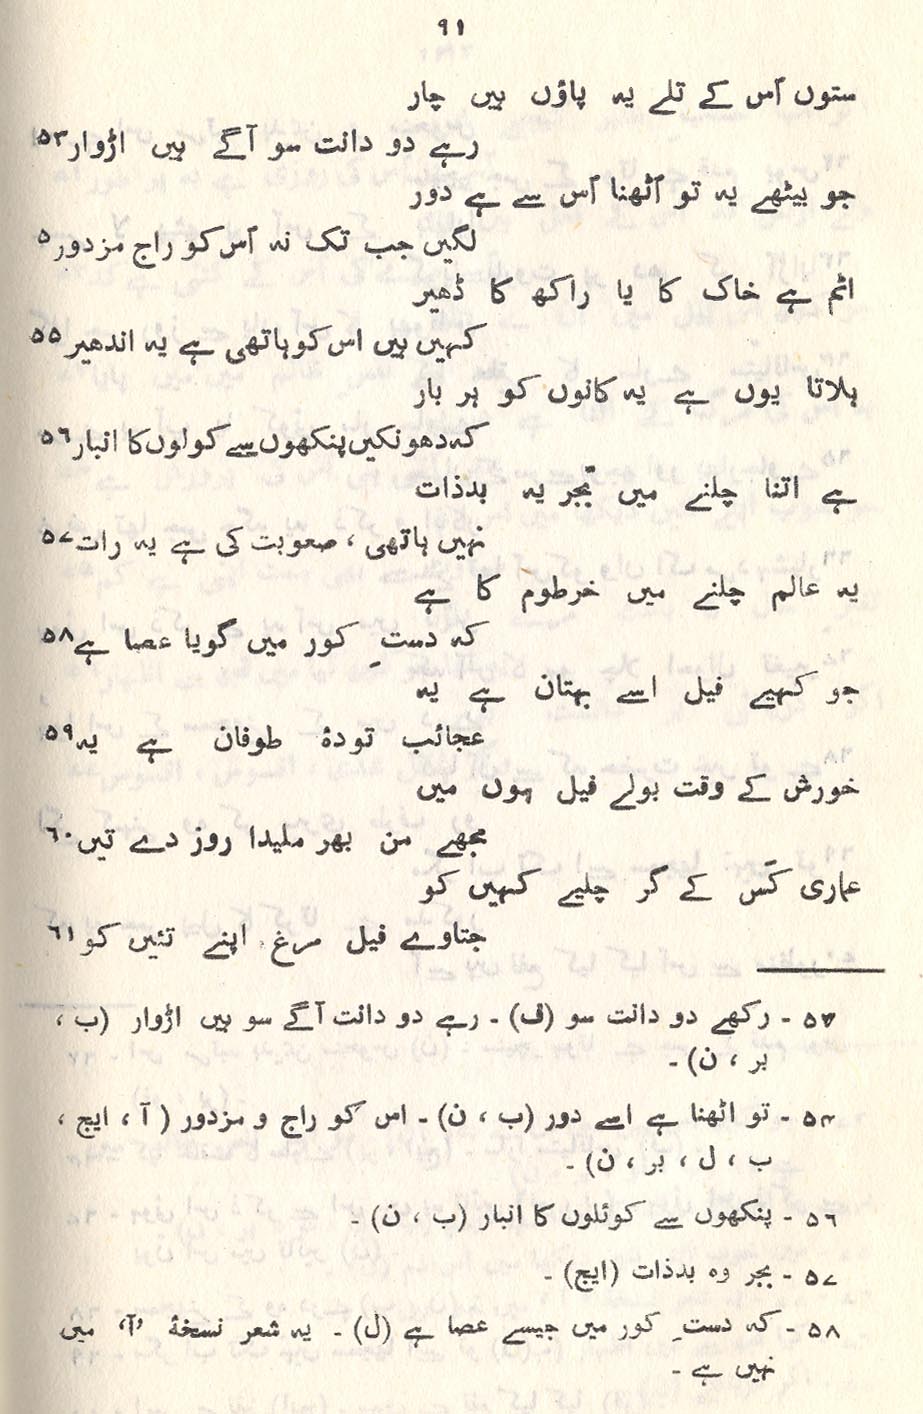 ۹۱
ستوں اُس کے تلے یہ پاؤں ہیں چار
رہے دو دانت سو آگے ہیں اڑوار ۵۳
جو بیٹھے یہ تو اُٹھنا اُس سے ہے دور
لگیں جب تک نہ اُس کو راج مزدور ۵
اٹم ہے خاک کا یا راکھ کا ڈھیر
کہیں ہیں اس کو ہاتھی ہے یہ اندھیر ۵۵
ہلاتا یوں ہے یہ کانوں کو ہر بار
کہ دھونکیں پنکھوں سے کولوں کا انبار ۵۶
ہے اتنا چلنے میں بجر یہ بدذات
نہیں ہاتھی، صعوبت کی ہے یہ رات ۵۷
یہ عالم چلنے میں خرطوم کا ہے
کہ دستِ کور میں گویا عصا ہے ۵۸
جو کہیے فیل اسے بہتان ہے یہ
عجائب تودۂ طوفان ہے یہ ۵۹
خورش کے وقت بولے فیل ہوں میں
مجھے من بھر ملیدا روز دے تیں ۶۰
عماری کَس کے گر چلیے کہیں کو
جتاوے فیل مرغ اپنے تئیں کو ۶۱
۵۳ - رکھے دو دانت سو (ف) - رہے دو دانت آگے سو ہیں اڑوار (ب،
بر، ن) -
۵۴ - تو اٹھنا ہے اسے دور (ب، ن) - اس کو راج و مزدور (آ، ایچ،
ب، ل، بر، ن) -
۵۶ - پنکھوں سے کوئلوں کا انبار (ب، ن) -
۵۷ - بجر وہ بدذات (ایچ) -
۵۸ - کہ دستِ کور میں جیسے عصا ہے (ل) - یہ شعر نسخۂ ’آ‘ میں
نہیں ہے -